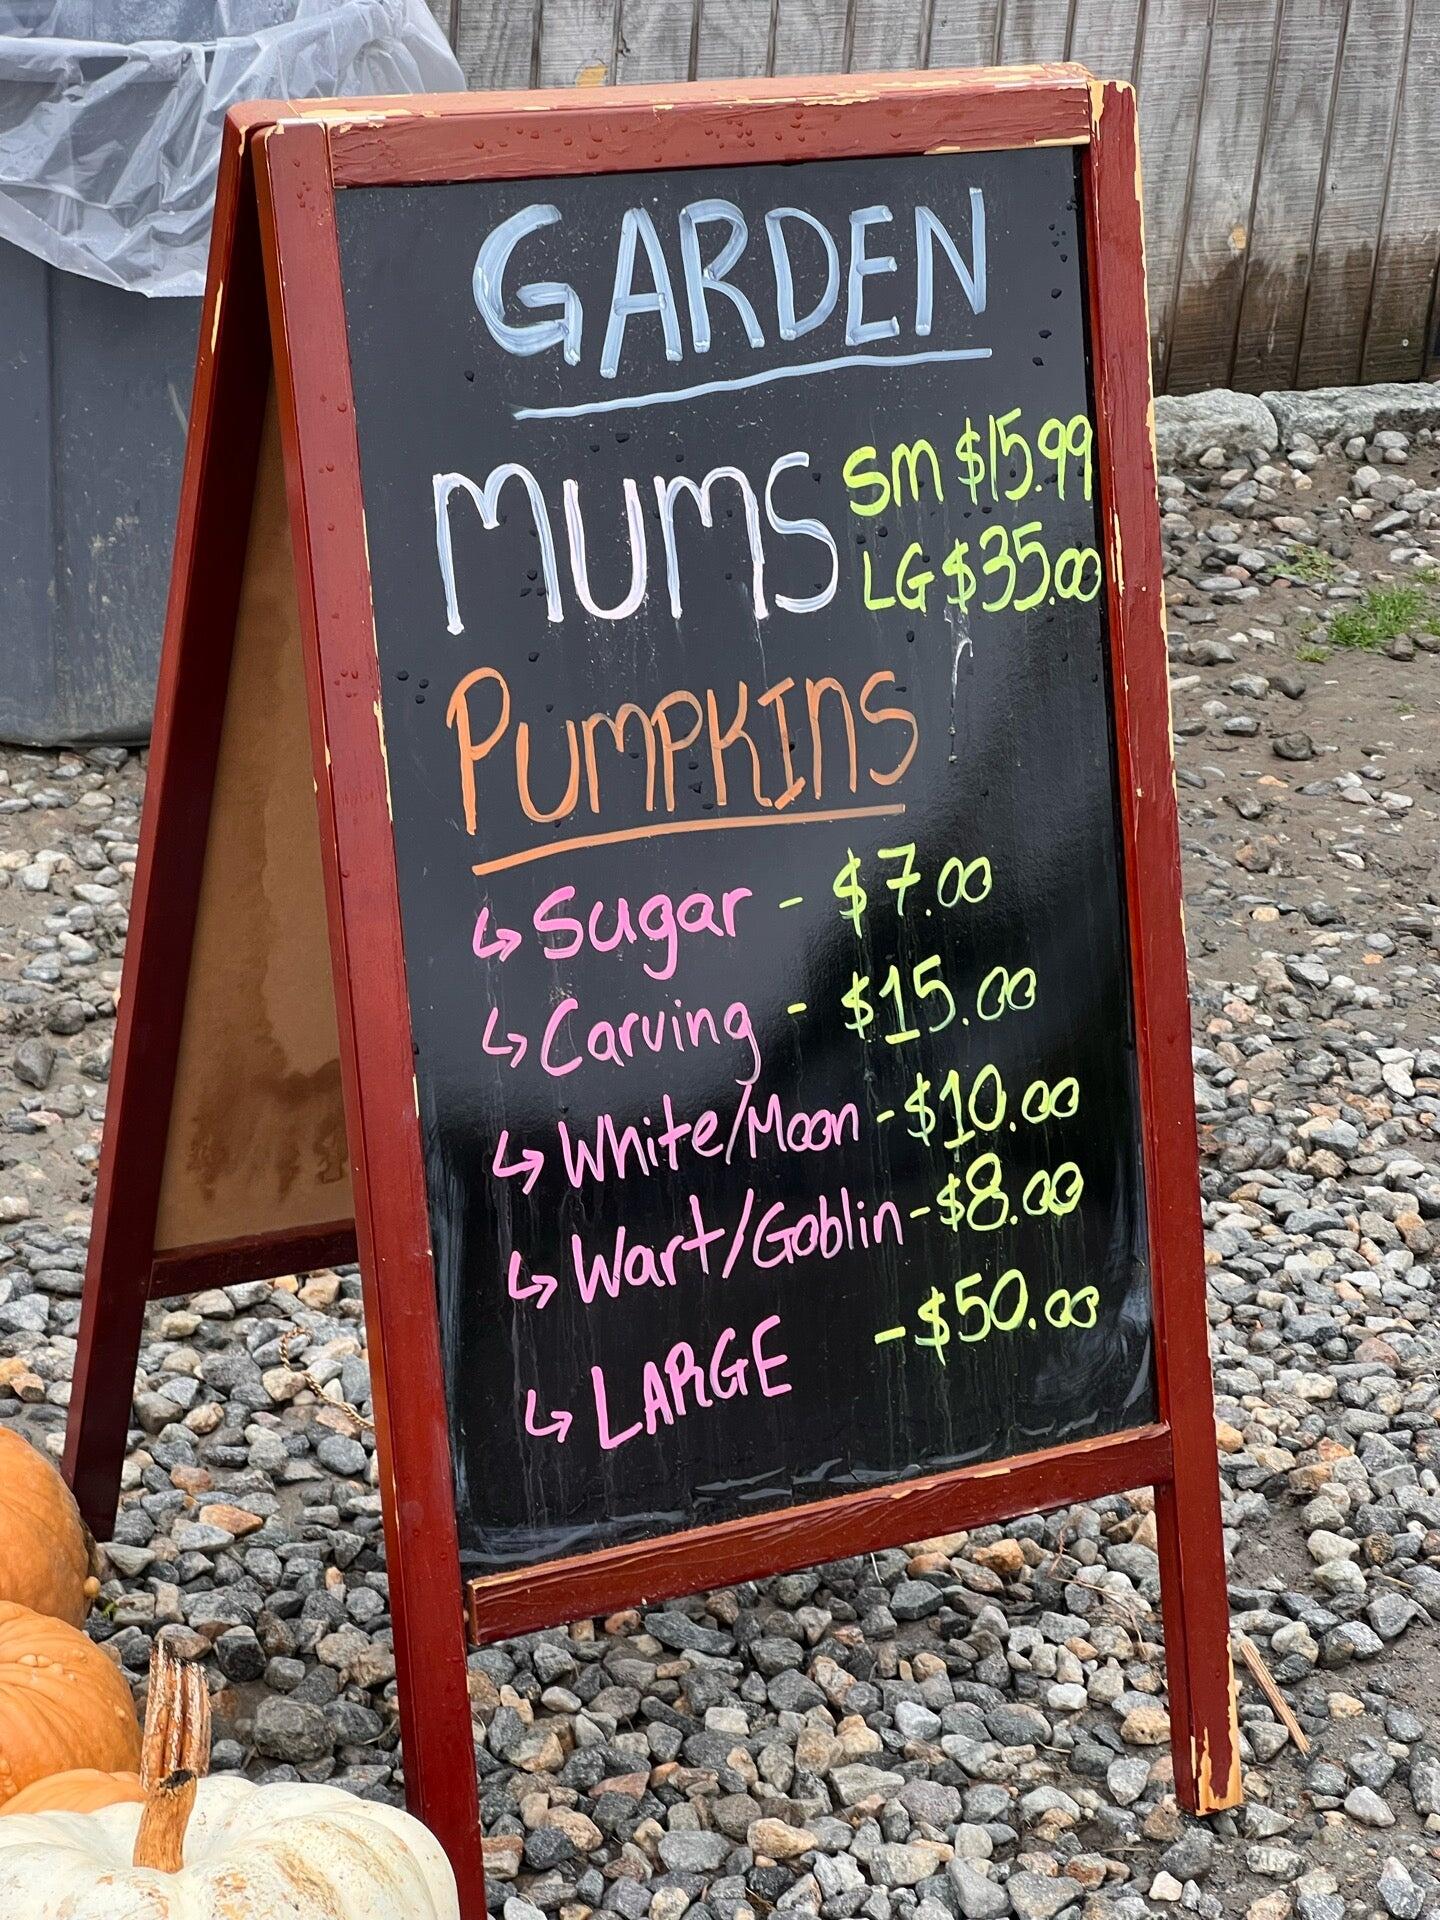 GARDEN
MUMS SM $15.99
LG $35.00
PUMPKINS
↳ Sugar - $7.00
↳ Carving - $15.00
↳ White/Moon - $10.00
↳ Wart/Goblin - $8.00
↳ LARGE - $50.00